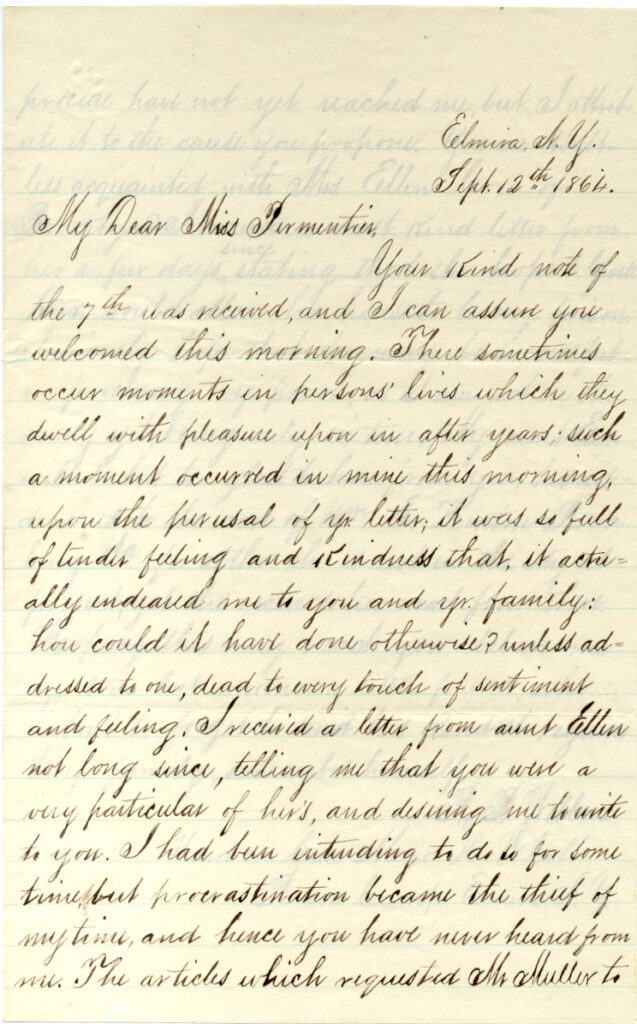 Elmira, N.Y.
Sept. 12th 1864.
My Dear Miss Permentier,
Your kind note of
the 7th was received, and I can assure you
welcomed this morning. There sometimes
occur moments in persons' lives which they
dwell with pleasure upon in after years; such
a moment occurred in mine this morning,
upon the perusal of yr letter; it was so full
of tender feeling and kindness that, it actu=
ally endeared me to you and yr. family:
how could it have done otherwise? unless ad=
dressed to one, dead to every touch of sentiment
and feeling. I received a letter from aunt Ellen
not long since, telling me that you were a
very particular of her's, and desiring me to write
to you. I had been intending to do so for some
time, but procrastination became the thief of
my time, and hence you have never heard from
me. The articles which requested Mr Muller to